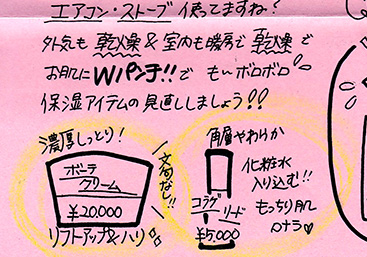 エアコン・ストーブ使ってますね?
外気も乾燥&室内も暖房で乾燥で
お肌にWパンチ!!でも〜ボロボロ
保湿アイテムの見直ししましょう!!
濃厚しっとり!
ボーテ
クリーム
¥20,000
リフトアップ&ハリ
文句なし!!
角層やわらか
コラグ
リード
¥5,000
化粧水
入り込む!!
もっちり肌